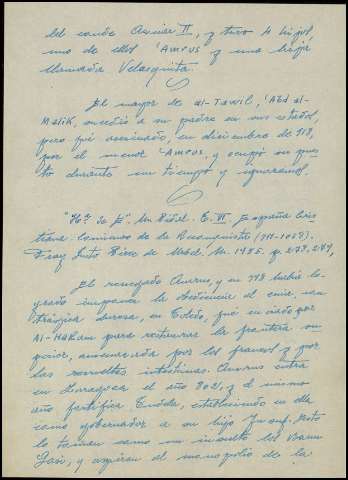 del conde Aznar II, y tuvo 4 hijos,
uno de ellos 'Amrus y una hija
llamada Velasquita.
El mayor de al-Tawil, 'Abd al-
Malik, sucedió a su padre en sus estados,
pero fué asesinado, en diciembre de 918,
por el menor 'Amrus, y ocupó su pues-
to durante un tiempo y
"Hª de E". M. Pidal. T. VI. España Cris-
tiana. Comienzo de la Reconquista (711-1038).
Fray Justo Pérez de Urbel. M. 1956. p. 273, 274,
El renegado Amrus, y en 798 había lo-
grado imponer la obediencia al emir, con
trágica dureza, en Toledo, fué enviado por
Al-Hakam para restaurar la frontera su-
perior, amenazada por los francos y por
las revueltas intestinas. Amrus entra
en Zaragoza el año 802, y el mismo
año fortifica Tudela, estableciendo en ella
como gobernador a su hijo Jusuf. Esto
lo toman como un insulto los Banu
Qasi, y aspiran al monopolio de la